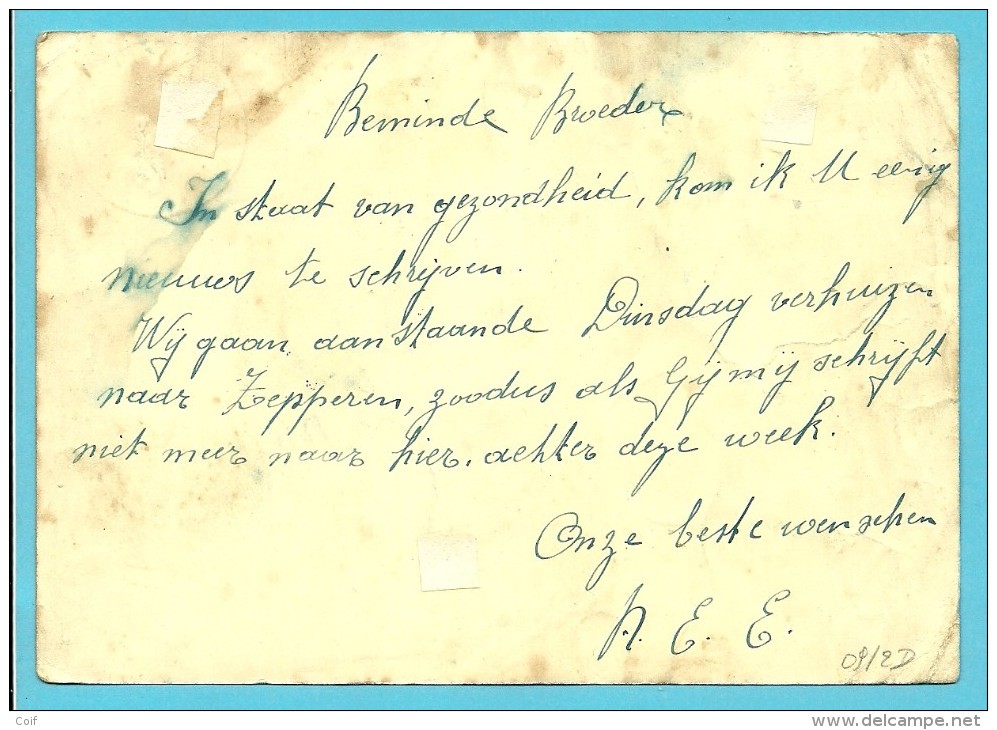 Beminde Broeder
In staat van gezondheid, kom ik U eenig
nieuws te schrijven.
Wij gaan aanstaande Dinsdag verhuizen
naar Zepperen, zoodus als Gij mij schrijft
niet meer naar hier. achter deze week.
Onze beste wenschen
A. E. E.
Coif
www.delcampe.net